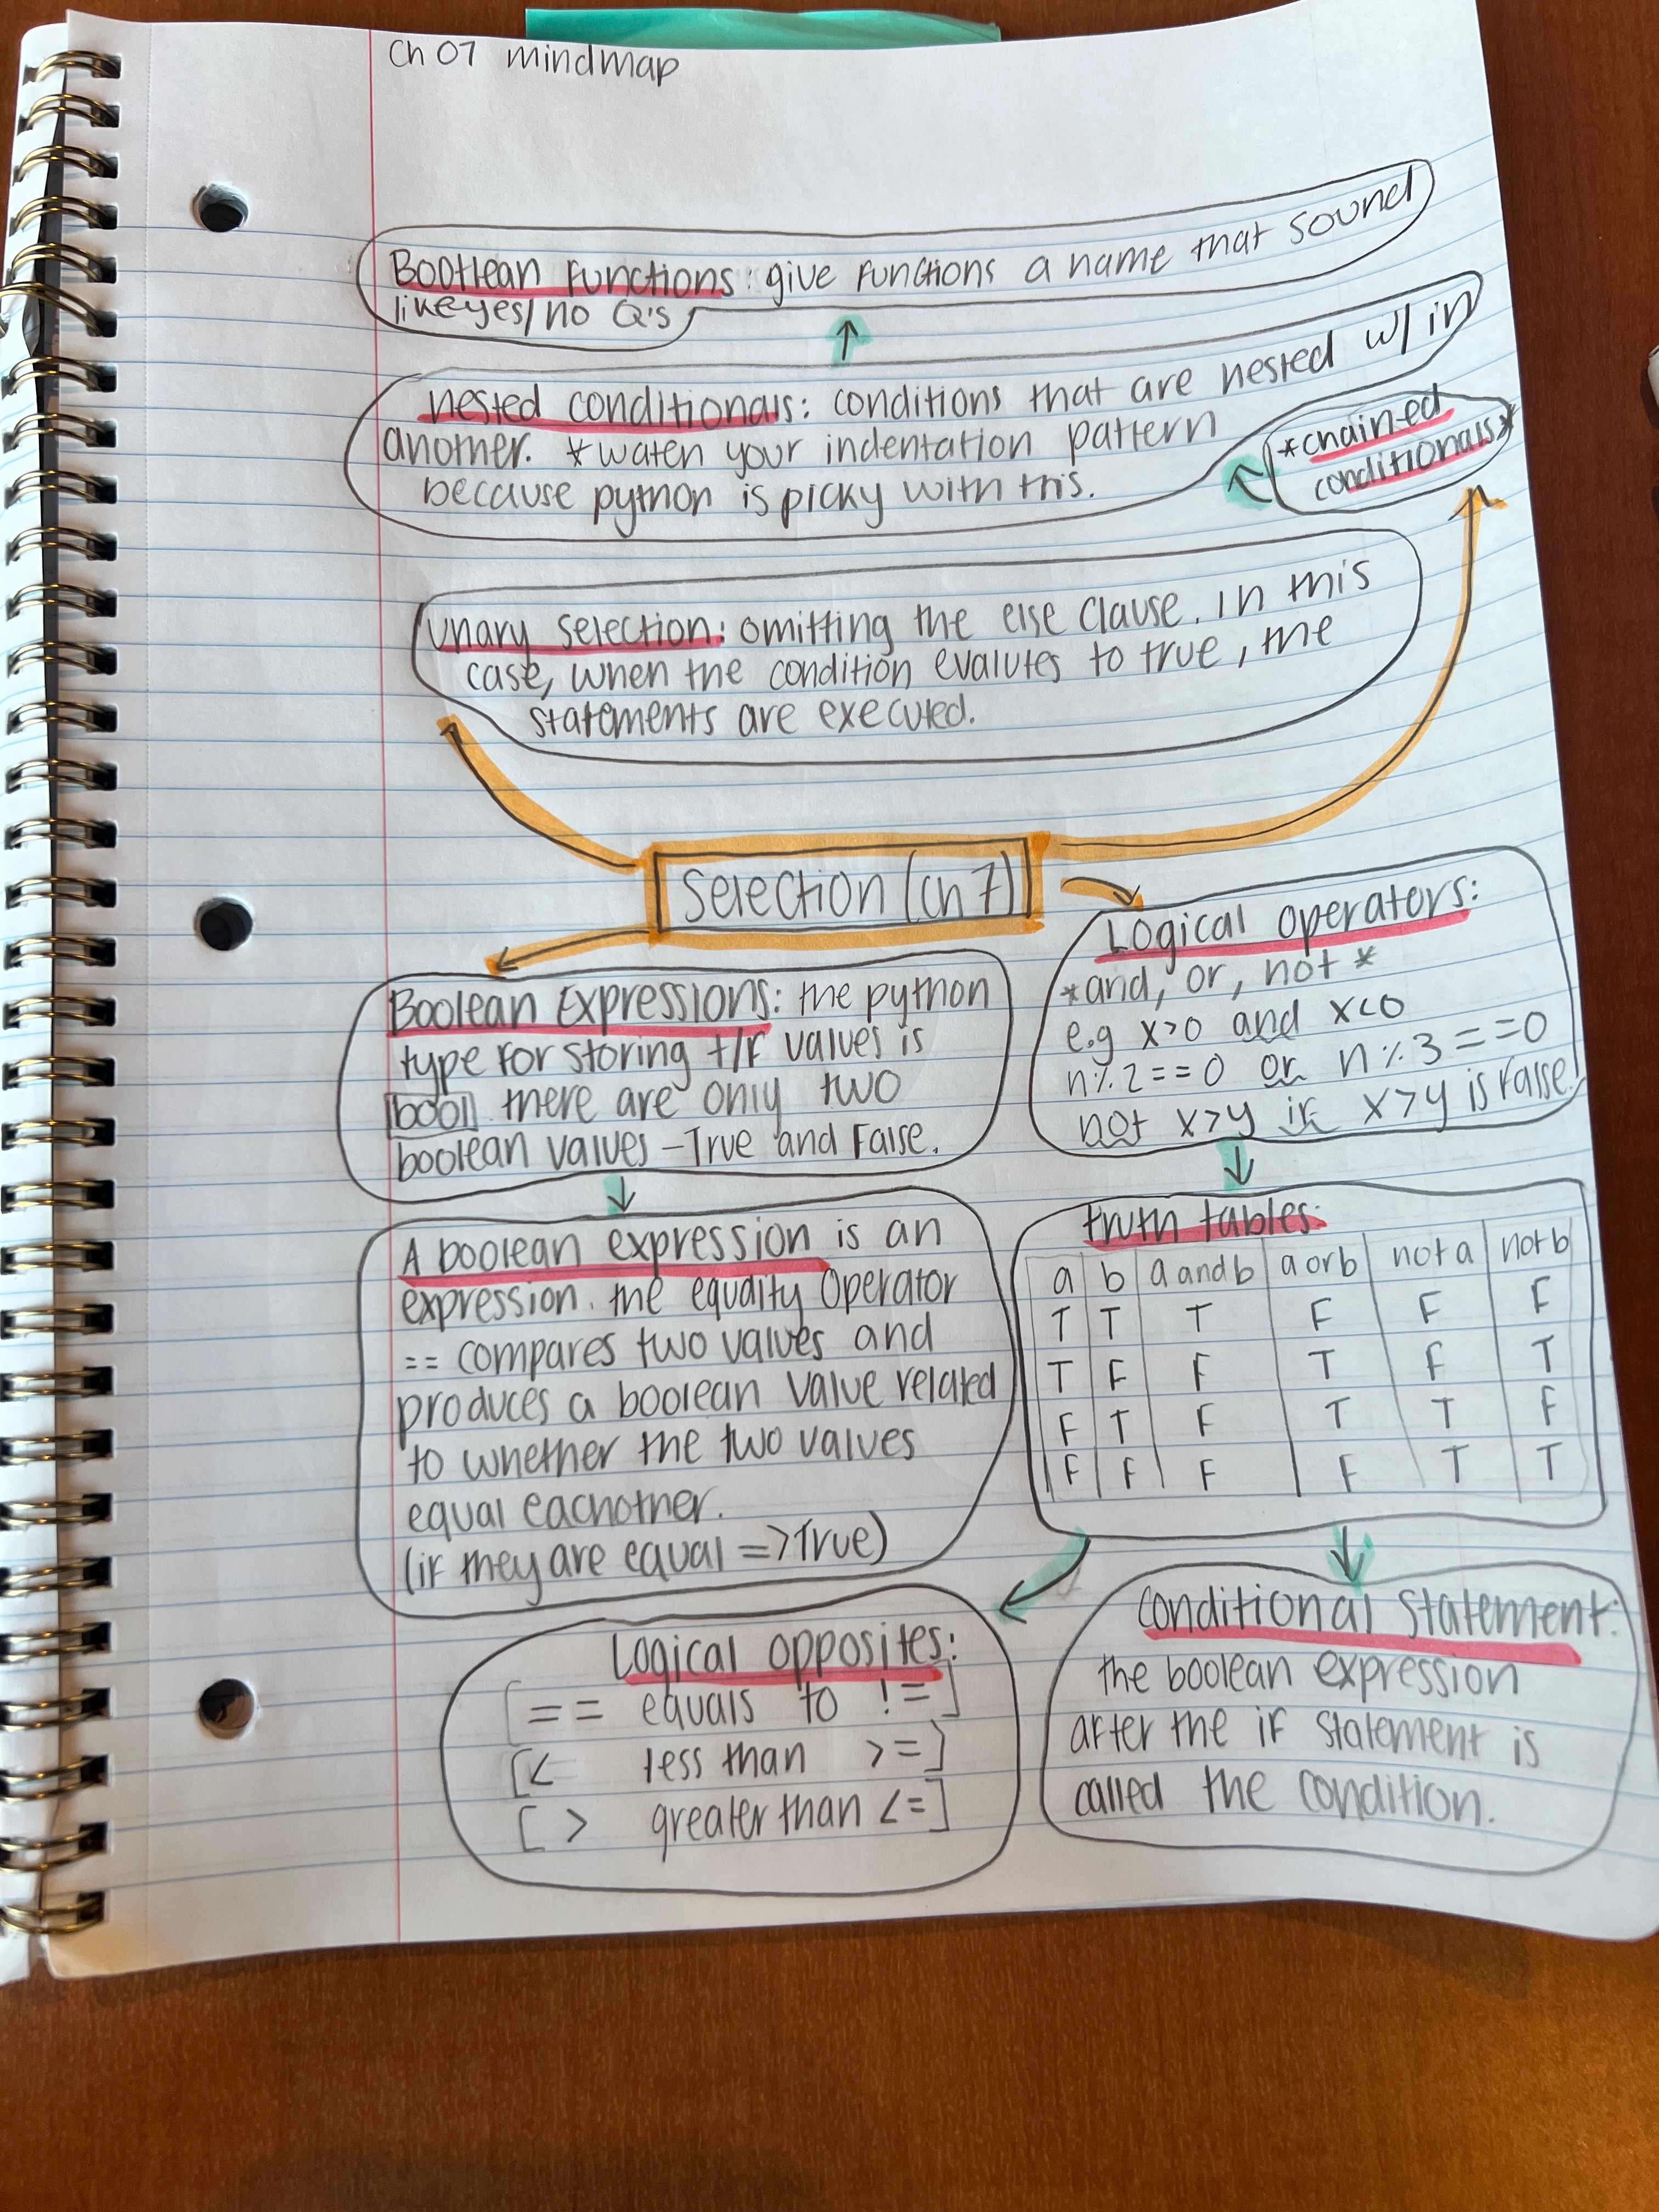 Ch 07 mindmap
Bootlean Functions: give functions a name that sound
like yes/no Q's
nested conditionals: conditions that are nested w/in
another. *watch your indentation pattern
because python is picky with this.
*chained
conditionals*
unary selection: omitting the else clause. in this
case, when the condition evalutes to true, the
statements are executed.
Selection (ch 7)
Boolean Expressions: the python
type for storing t/f values is
bool. there are only two
boolean values - True and False.
Logical operators:
*and, or, not *
e.g x>0 and x<0
n%2==0 or n%3==0
not x>y if x>y is false.
A boolean expression is an
expression. the equality operator
== compares two values and
produces a boolean value related
to whether the two values
equal eachother.
(if they are equal => True)
truth tables:
a b a and b a or b not a not b
T T T F F F
T F F T F T
F T F T T F
F F F F T T
Logical opposites:
[== equals to !=]
[< less than >=]
[> greater than <=]
Conditional Statement:
the boolean expression
after the if statement is
called the condition.